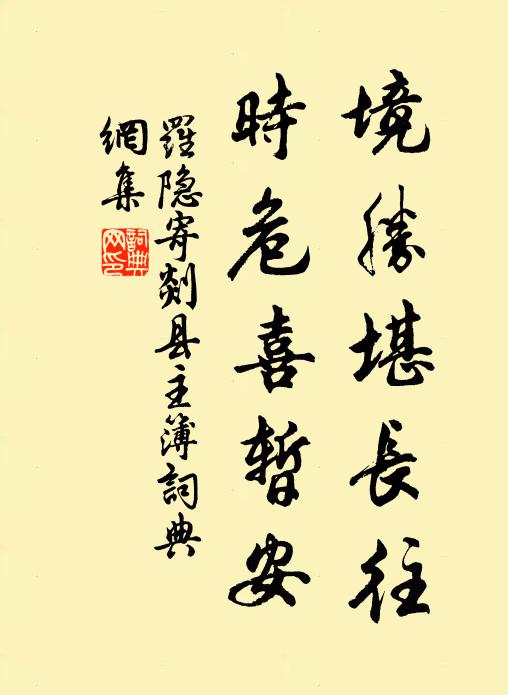 境勝堪長往
時危喜暫安
羅隐寄剡县主簿詞典
網集
詞典
网印